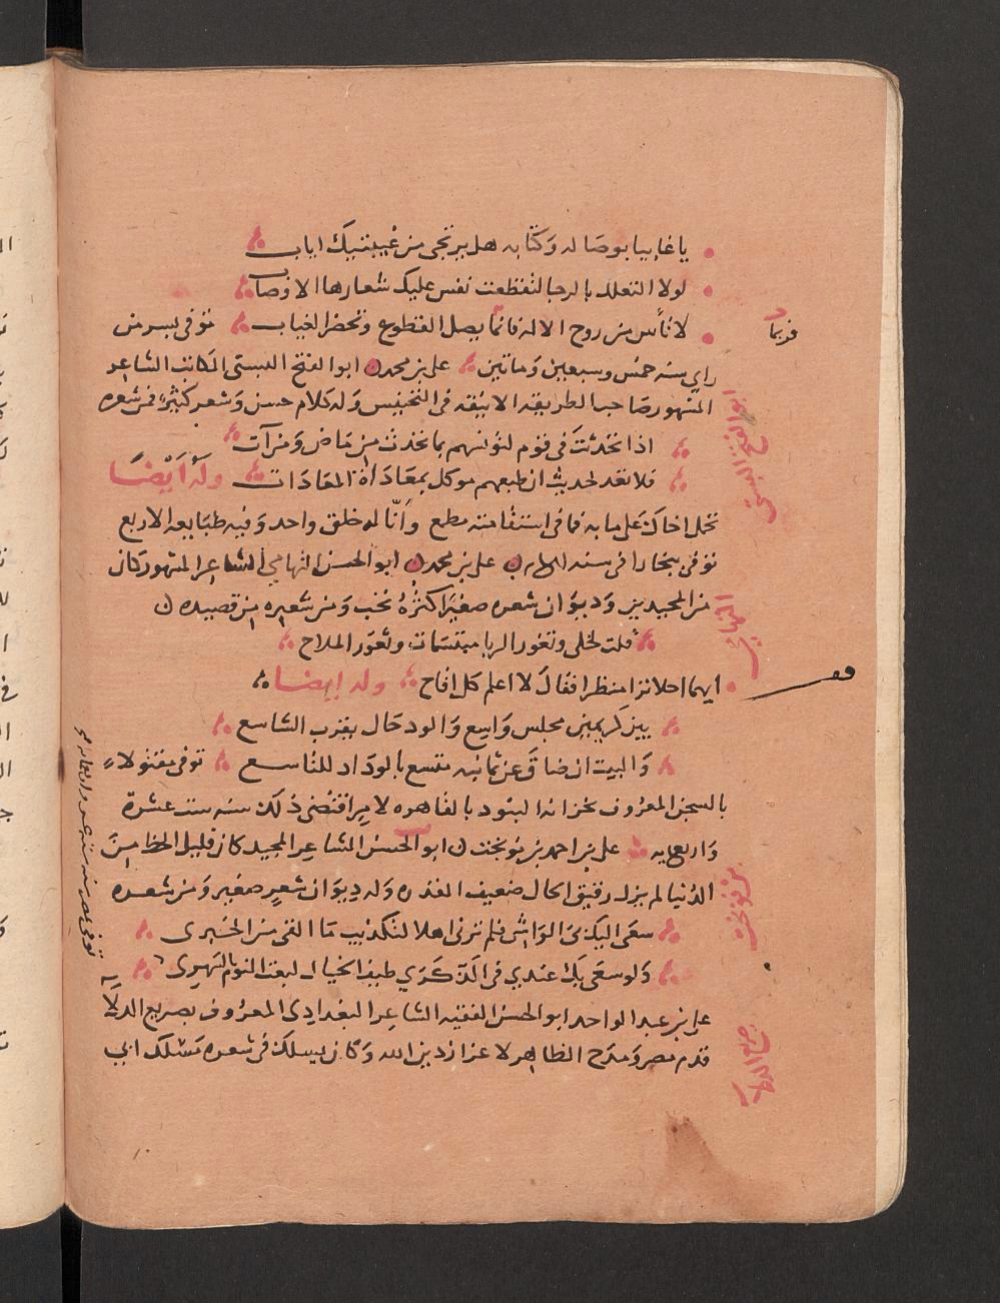 يا غايبا بوصاله وكتابه هل يرتجى من غيبتيك اياب
لولا التعلل بالرجا لتقطعت نفس عليك شعارها الاوصاب
لا تأس من روح الاله فانما يصل القطوع وتحضر الغياب توفى بسر من
فربما
راي سنه خمس وسبعين وماتين على بن محمد ابو الفتح البستى الكاتب الشاعر
المشهور صاحب الطريقه الانيقه فى التجنيس وله كلام حسن وشعر كثير فمن شعره
ابو الفتح البستى
اذا تحدثت فى قوم لتونسهم بما تحدث من ماض ومن آت
فلا تعد لحديث ان طبعهم موكل بمعاداة المعادات وله ايضا
تحمل اخاك على ما به فما فى استقامته مطمع وانا له خلق واحد وفيه طبايعه الاربع
توفى ببخارا فى سنه على بن محمد ابو الحسن التهامي الشاعر المشهور كان
من المجيدين وديوان شعره صغير اكثره نخب ومن شعره من قصيده
التهامي
قلت لخلى وثغور الربا مبتسمات وثغور الملاح
ايهما احلا ترا منظرا فقال لا اعلم كل اقاح وله ايضا
بين كريمين مجلس واسع والود حال بقرب الشاسع
والبيت ان ضاق عن ثمانيه متسع بالوداد للتاسع توفى مقتولا
بالسجن المعروف بخزانه البنود بالقاهره لامر اقتضى ذلك سنه ست عشرة
واربعميه على بن احمد بن نوبخت ابو الحسن الشاعر المجيد كان قليل الحظ من
الدنيا لم يزل رقيق الحال ضعيف القدره وله ديوان شعر صغير ومن شعره
بن نوبخت
سعى اليك بى الواشى فلم ترنى اهلا لتكذيب ما القى من الخبرى
ولو سعى بك عندي فى الذ كري طيف الخيال لبعت النوم بالسهرى
على بن عبد الواحد ابو الحسن الفقيه الشاعر البغدادى المعروف بصريع الدلا
قدم مصر ومدح الظاهر لاعزاز دين الله وكان يسلك فى شعره مسلك ابي
صريع الدلا